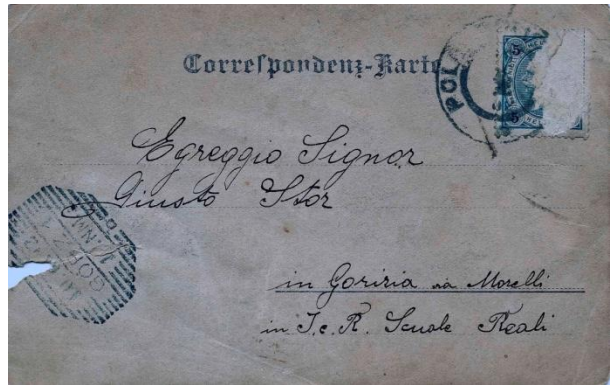 Correspondenz-Karte
POLA
5
5
Egreggio Signor
Giusto Stor
in Gorizia via Morelli
in I. e R. Scuole Reali